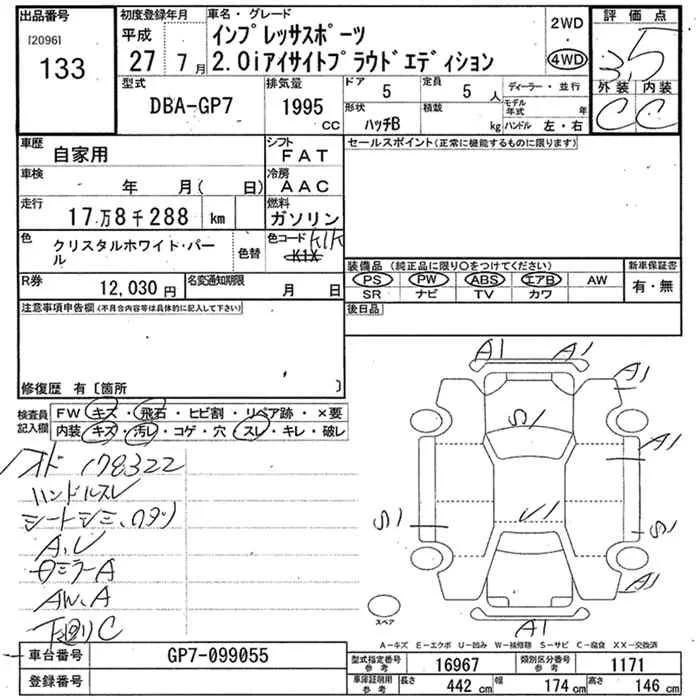 出品番号 初度登録年月 車名・グレード 2WD 評価点
[2096] 平成 インプレッサスポーツ 3.5
133 27 7月 2.0iアイサイトプラウドエディション 4WD 外装 内装
型式 排気量 ドア 5 定員 5人 ディーラー・並行 C C
DBA-GP7 1995 CC 形状 ハッチB 積載 kg モデル年式 年 ハンドル 左・右
車歴 自家用 シフト FAT セールスポイント(正常に機能するものに限ります)
車検 年 月( 日) 冷房 AAC
走行 17万8千288 km 燃料 ガソリン
色 クリスタルホワイト・パール 色替 色コード K1X
装備品 (純正品に限り○をつけてください) 新車保証書
R券 12,030円 名変通知期限 月 日 PS PW ABS エアB AW 有・無
SR ナビ TV カワ
注意事項申告欄(不具合内容等は具体的に記入して下さい) 後日品
修復歴 有〔箇所 〕
検査員記入欄 FW キズ・飛石・ヒビ割・リペア跡・×要
内装 キズ・汚レ・コゲ・穴・スレ・キレ・破レ
A1 A1
A1
S1
A1
178322
ハンドルスレ
シートシミ、
S1 S1
A、U
ミラーA
AW、A
A1
下回りC
スペア
A1
A-キズ E-エクボ U-凹み W-補修跡 S-サビ C-腐食 XX-交換済
車台番号 GP7-099055 型式指定番号参考 16967 類別区分番号参考 1171
登録番号 車庫証明用参考 長さ 442 cm 幅 174 cm 高さ 146 cm